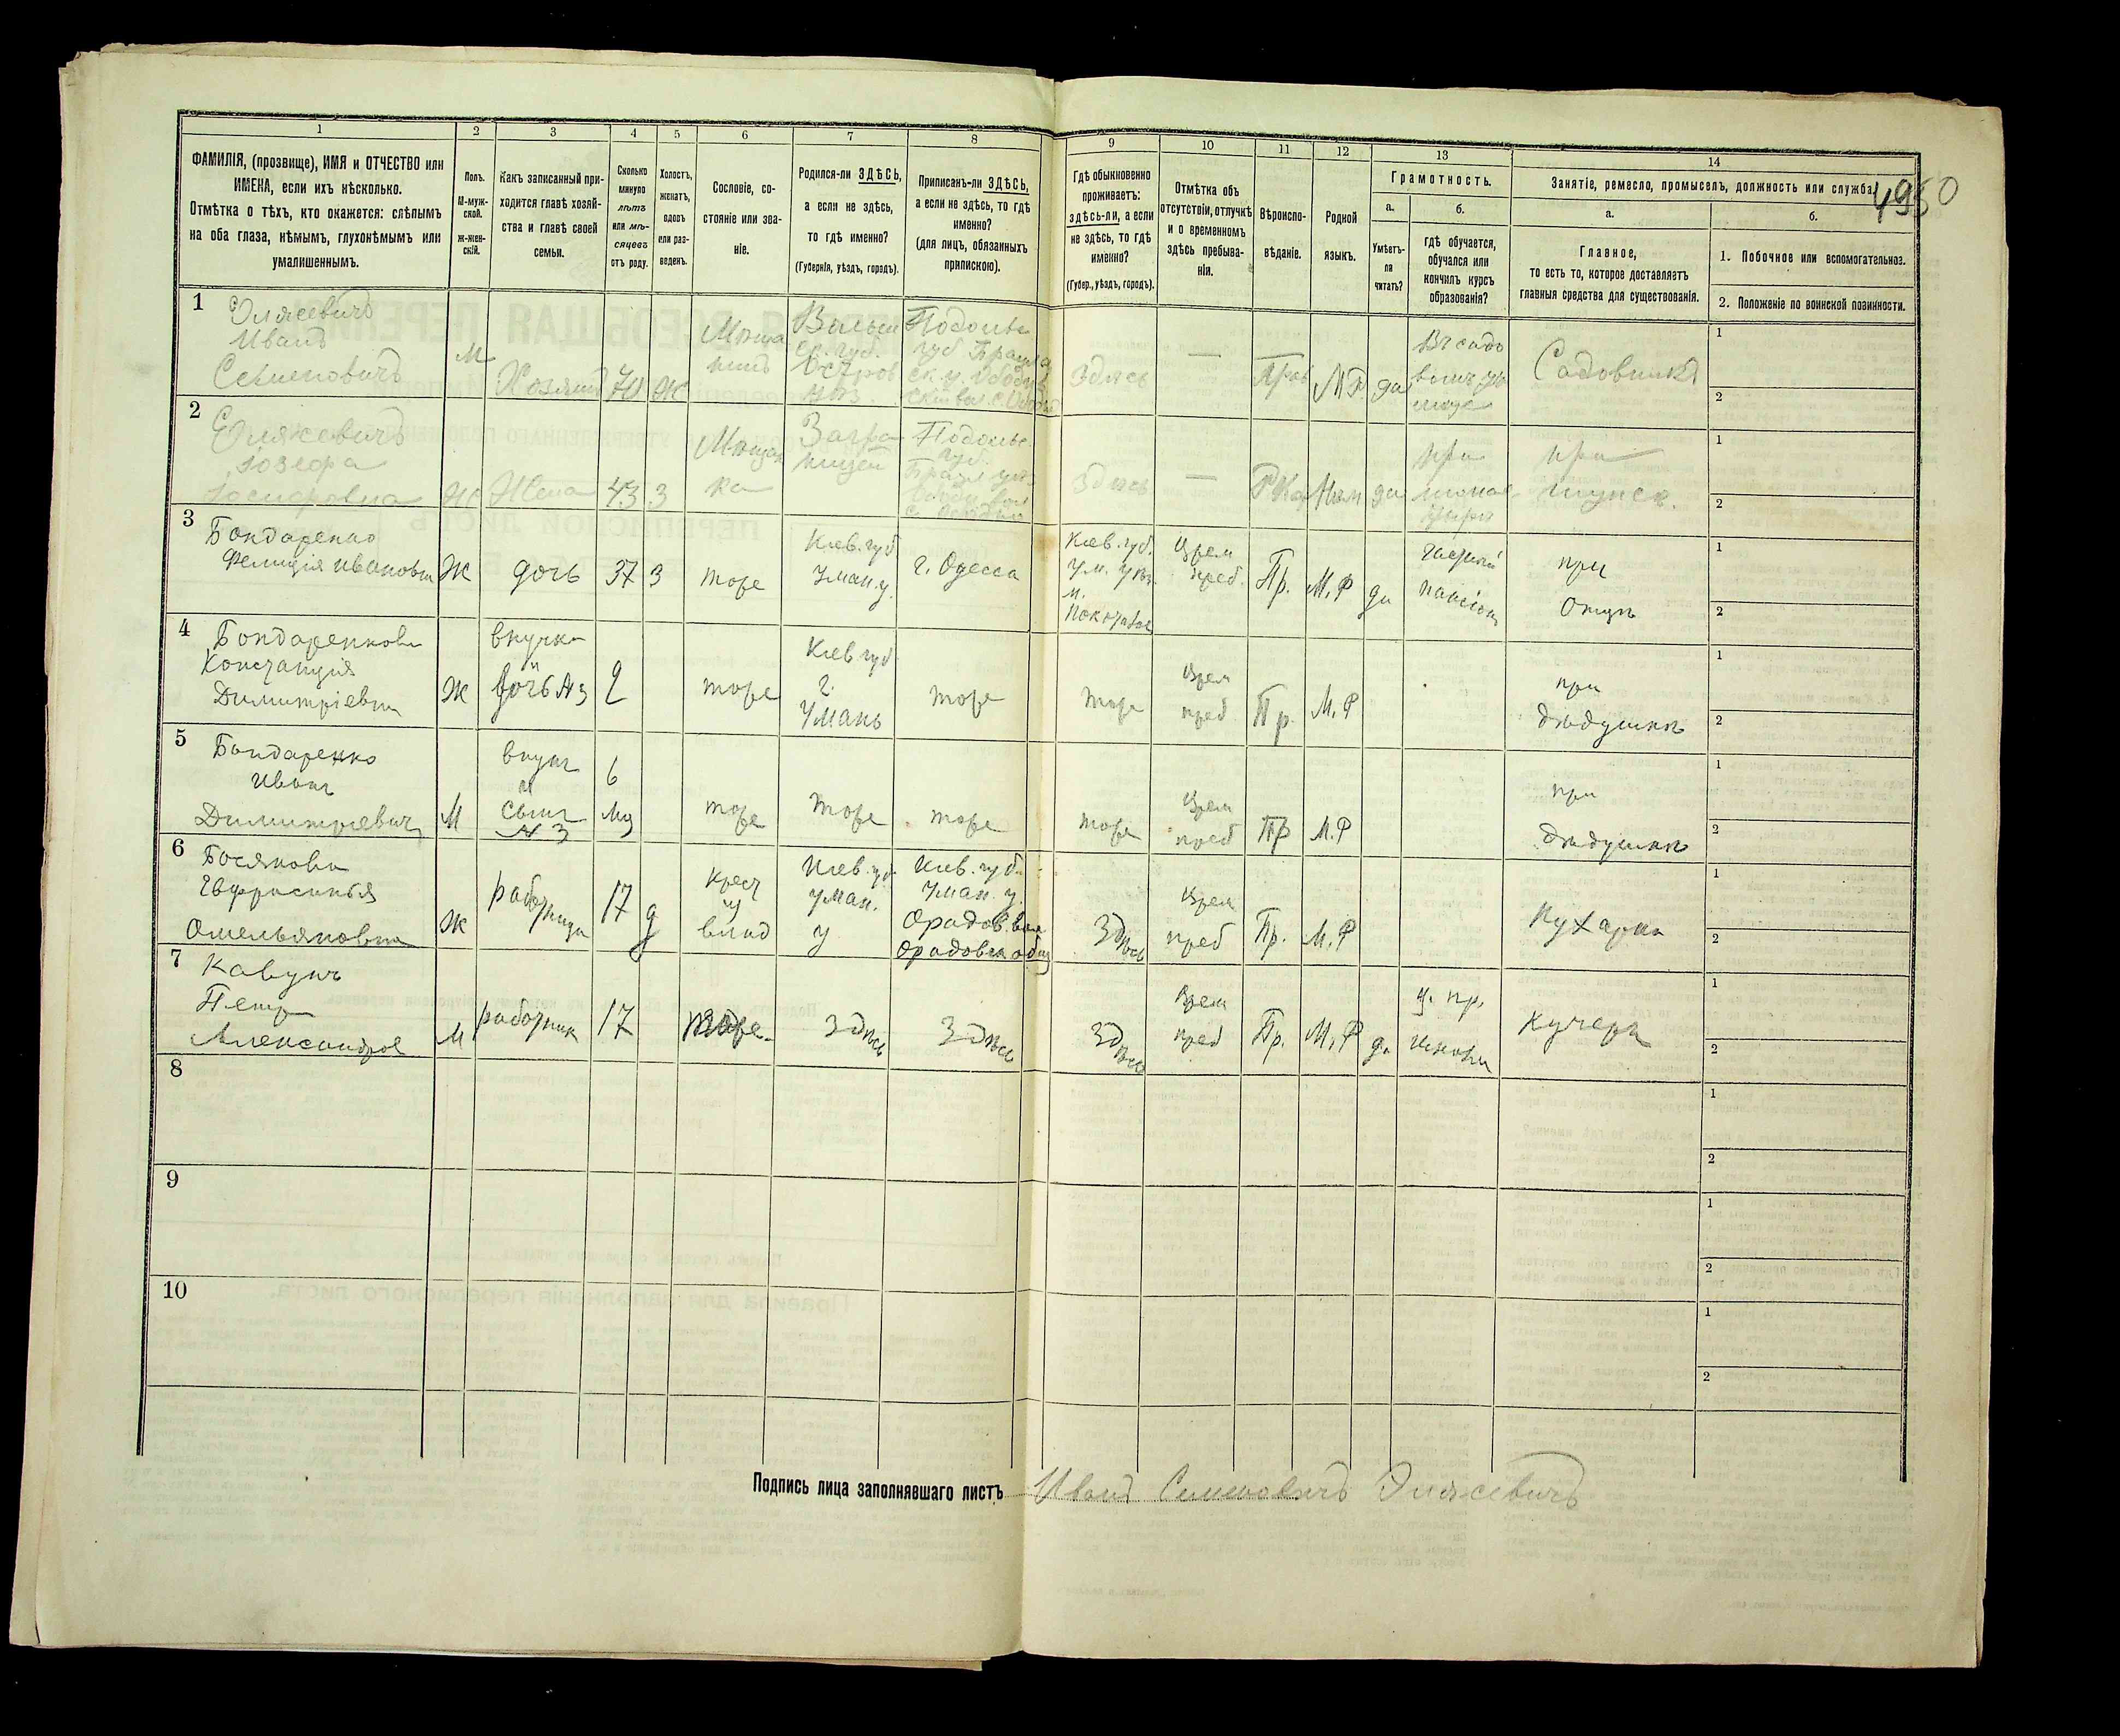 1 2 3 4 5 6 7 8 9 10 11 12 13 14
ФАМИЛІЯ, (прозвище), ИМЯ и ОТЧЕСТВО или
ИМЕНА, если ихъ нѣсколько.
Отмѣтка о тѣхъ, кто окажется: слѣпымъ
на оба глаза, нѣмымъ, глухонѣмымъ или
умалишеннымъ.
Полъ.
М-муж-
ской.
Ж-жен-
скій.
Какъ записанный при-
ходится главѣ хозяй-
ства и главѣ своей
семьи.
Сколько
минуло
лѣтъ
или мѣ-
сяцевъ
отъ роду.
Холостъ,
женатъ,
вдовъ
или раз-
веденъ.
Сословіе, со-
стояніе или зва-
ніе.
Родился-ли ЗДѢСЬ,
а если не здѣсь,
то гдѣ именно?
(Губернія, уѣздъ, городъ).
Приписанъ-ли ЗДѢСЬ,
а если не здѣсь, то гдѣ
именно?
(для лицъ, обязанныхъ
припискою).
Гдѣ обыкновенно
проживаетъ:
здѣсь-ли, а если
не здѣсь, то гдѣ
именно?
(Губер., уѣздъ, городъ).
Отмѣтка объ
отсутствіи, отлучкѣ
и о временномъ
здѣсь пребыва-
ніи.
Вѣроиспо-
вѣданіе.
Родной
языкъ.
Грамотность.
а.
Умѣетъ-
ли
читать?
б.
гдѣ обучается,
обучался или
кончилъ курсъ
образованія?
Занятіе, ремесло, промыселъ, должность или служба.
а.
Главное,
то есть то, которое доставляетъ
главныя средства для существованія.
б.
1. Побочное или вспомогательное.
2. Положеніе по воинской повинности.
1
Элясевичъ
Иванъ
Семеновичъ
М
Хозяинъ
70
Ж
Мѣща
нинъ
Остров
Подольск
Здѣсь
—
Прав
М.Р.
да
Въ садо
Садовникъ
1
2
2
Елясевичъ
Іозефа
Іосифовна
Ж
Жена
43
З
Мѣщан
ка
Загра
ницей
Подольс
губ.
Здѣсь
—
Р Кат
да
при
при
1
2
3
Бондаренко
Фелиція Ивановна
Ж
дочь
37
З
тоже
Кіев. губ
Уман. у.
г. Одесса
Кіев. губ.
Ум. у.
м.
Врем
преб.
Пр.
М.Р
да
пансіонъ
при
отцѣ
1
2
4
Бондаренкова
Констанція
Димитріевна
Ж
внучка
и
дочь №3
2
тоже
Кіев губ
г.
Умань
тоже
тоже
Врем
преб
Пр.
М.Р
при
дѣдушкѣ
1
2
5
Бондаренко
Иванъ
Димитріевичъ
М
внукъ
и
сынъ
№ 3
6
мѣ
тоже
тоже
тоже
тоже
Врем
преб
Пр
М.Р
при
дѣдушкѣ
1
2
6
Омельяновна
Ж
работница
17
д
крест
влад
Кіев. губ
Уман.
у
Кіев. губ.
Уман. у.
Орадов. вол
Орадовск общ
Здѣсь
Врем
преб
Пр.
М.Р
Кухарка
1
2
7
Кавунъ
Петръ
Александров
М
работник
17
тоже
Здѣсь
Здѣсь
Здѣсь
Врем
преб
Пр.
М.Р
да
школа
кучеръ
1
2
8
1
2
9
1
2
10
1
2
Подпись лица заполнявшаго листъ Иванъ Семеновичъ Элясевичъ